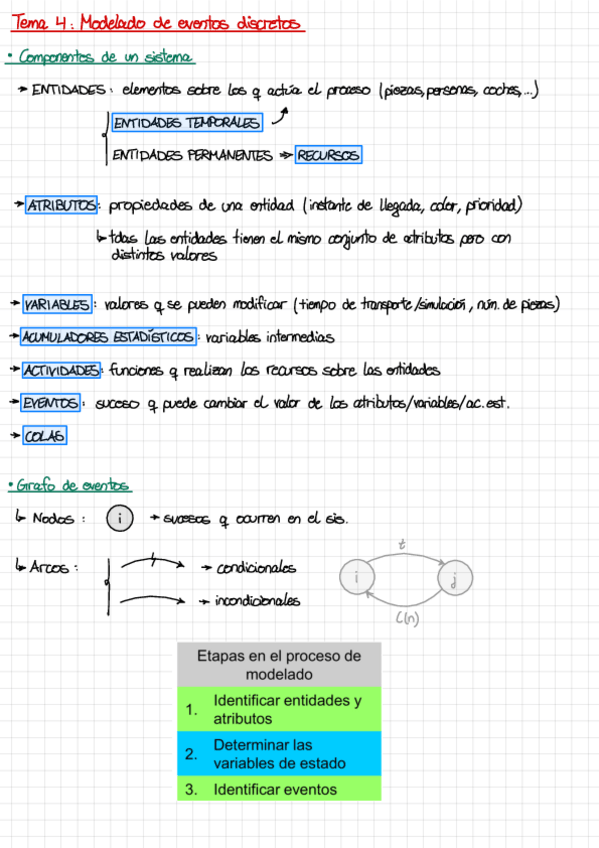 Tema 4: Modelado de eventos discretos
• Componentes de un sistema
→ ENTIDADES: elementos sobre los q actúa el proceso (piezas, personas, coches,...)
ENTIDADES TEMPORALES
ENTIDADES PERMANENTES ⇒ RECURSOS
→ ATRIBUTOS: propiedades de una entidad (instante de llegada, color, prioridad)
↳ tdas las entidades tienen el mismo conjunto de atributos pero con
distintos valores
→ VARIABLES: valores q se pueden modificar (tiempo de transporte/simulación, núm. de piezas)
→ ACUMULADORES ESTADÍSTICOS: variables intermedias
→ ACTIVIDADES: funciones q realizan los recursos sobre las entidades
→ EVENTOS: suceso q puede cambiar el valor de los atributos/variables/ac.est.
→ COLAS
• Grafo de eventos
↳ Nodos: i → sucesos q ocurren en el sis.
↳ Arcos: → condicionales
→ incondicionales
t
i j
C(n)
Etapas en el proceso de
modelado
1. Identificar entidades y
atributos
2. Determinar las
variables de estado
3. Identificar eventos